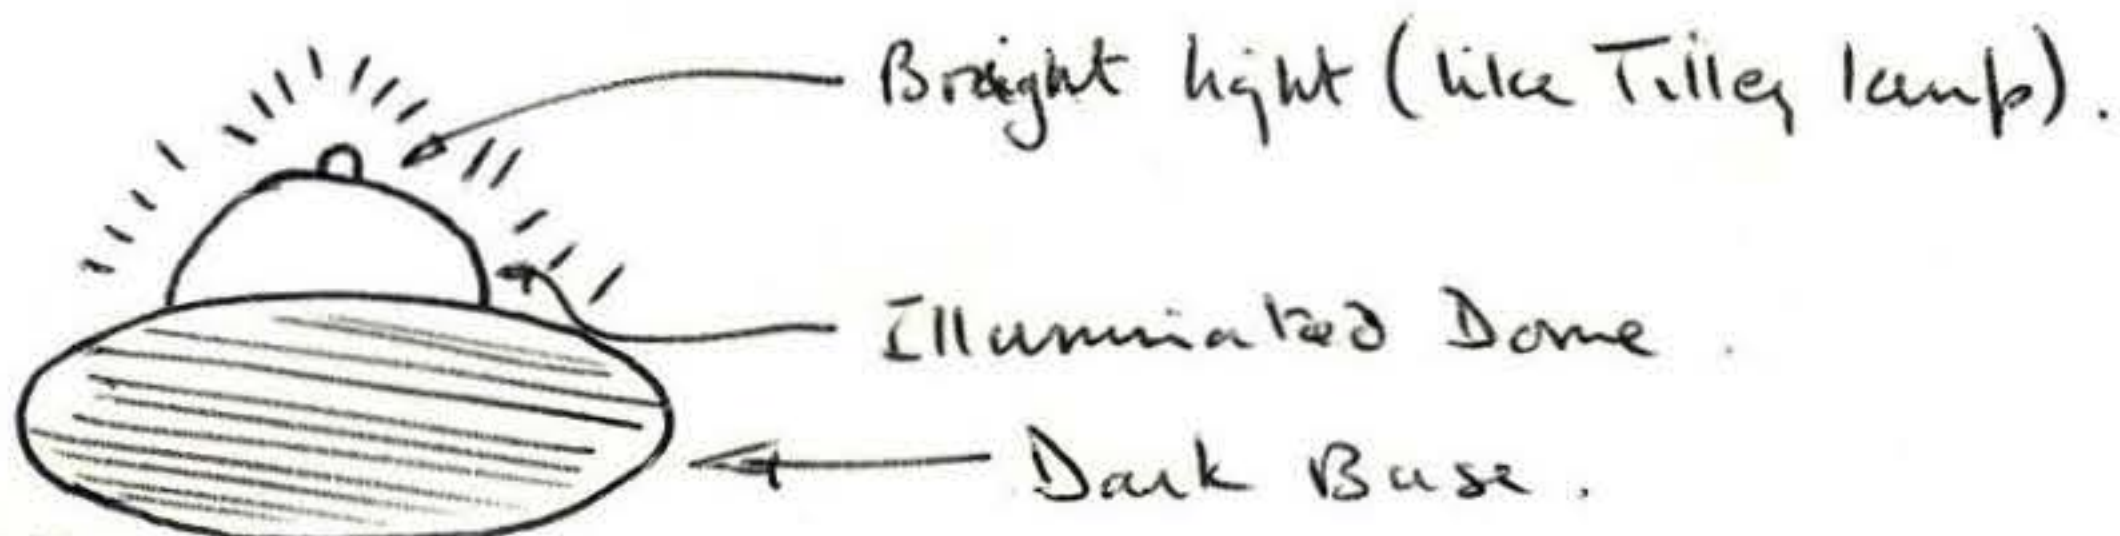 Bright light (like Tilley lamp).
Illuminated Dome.
Dark Base.